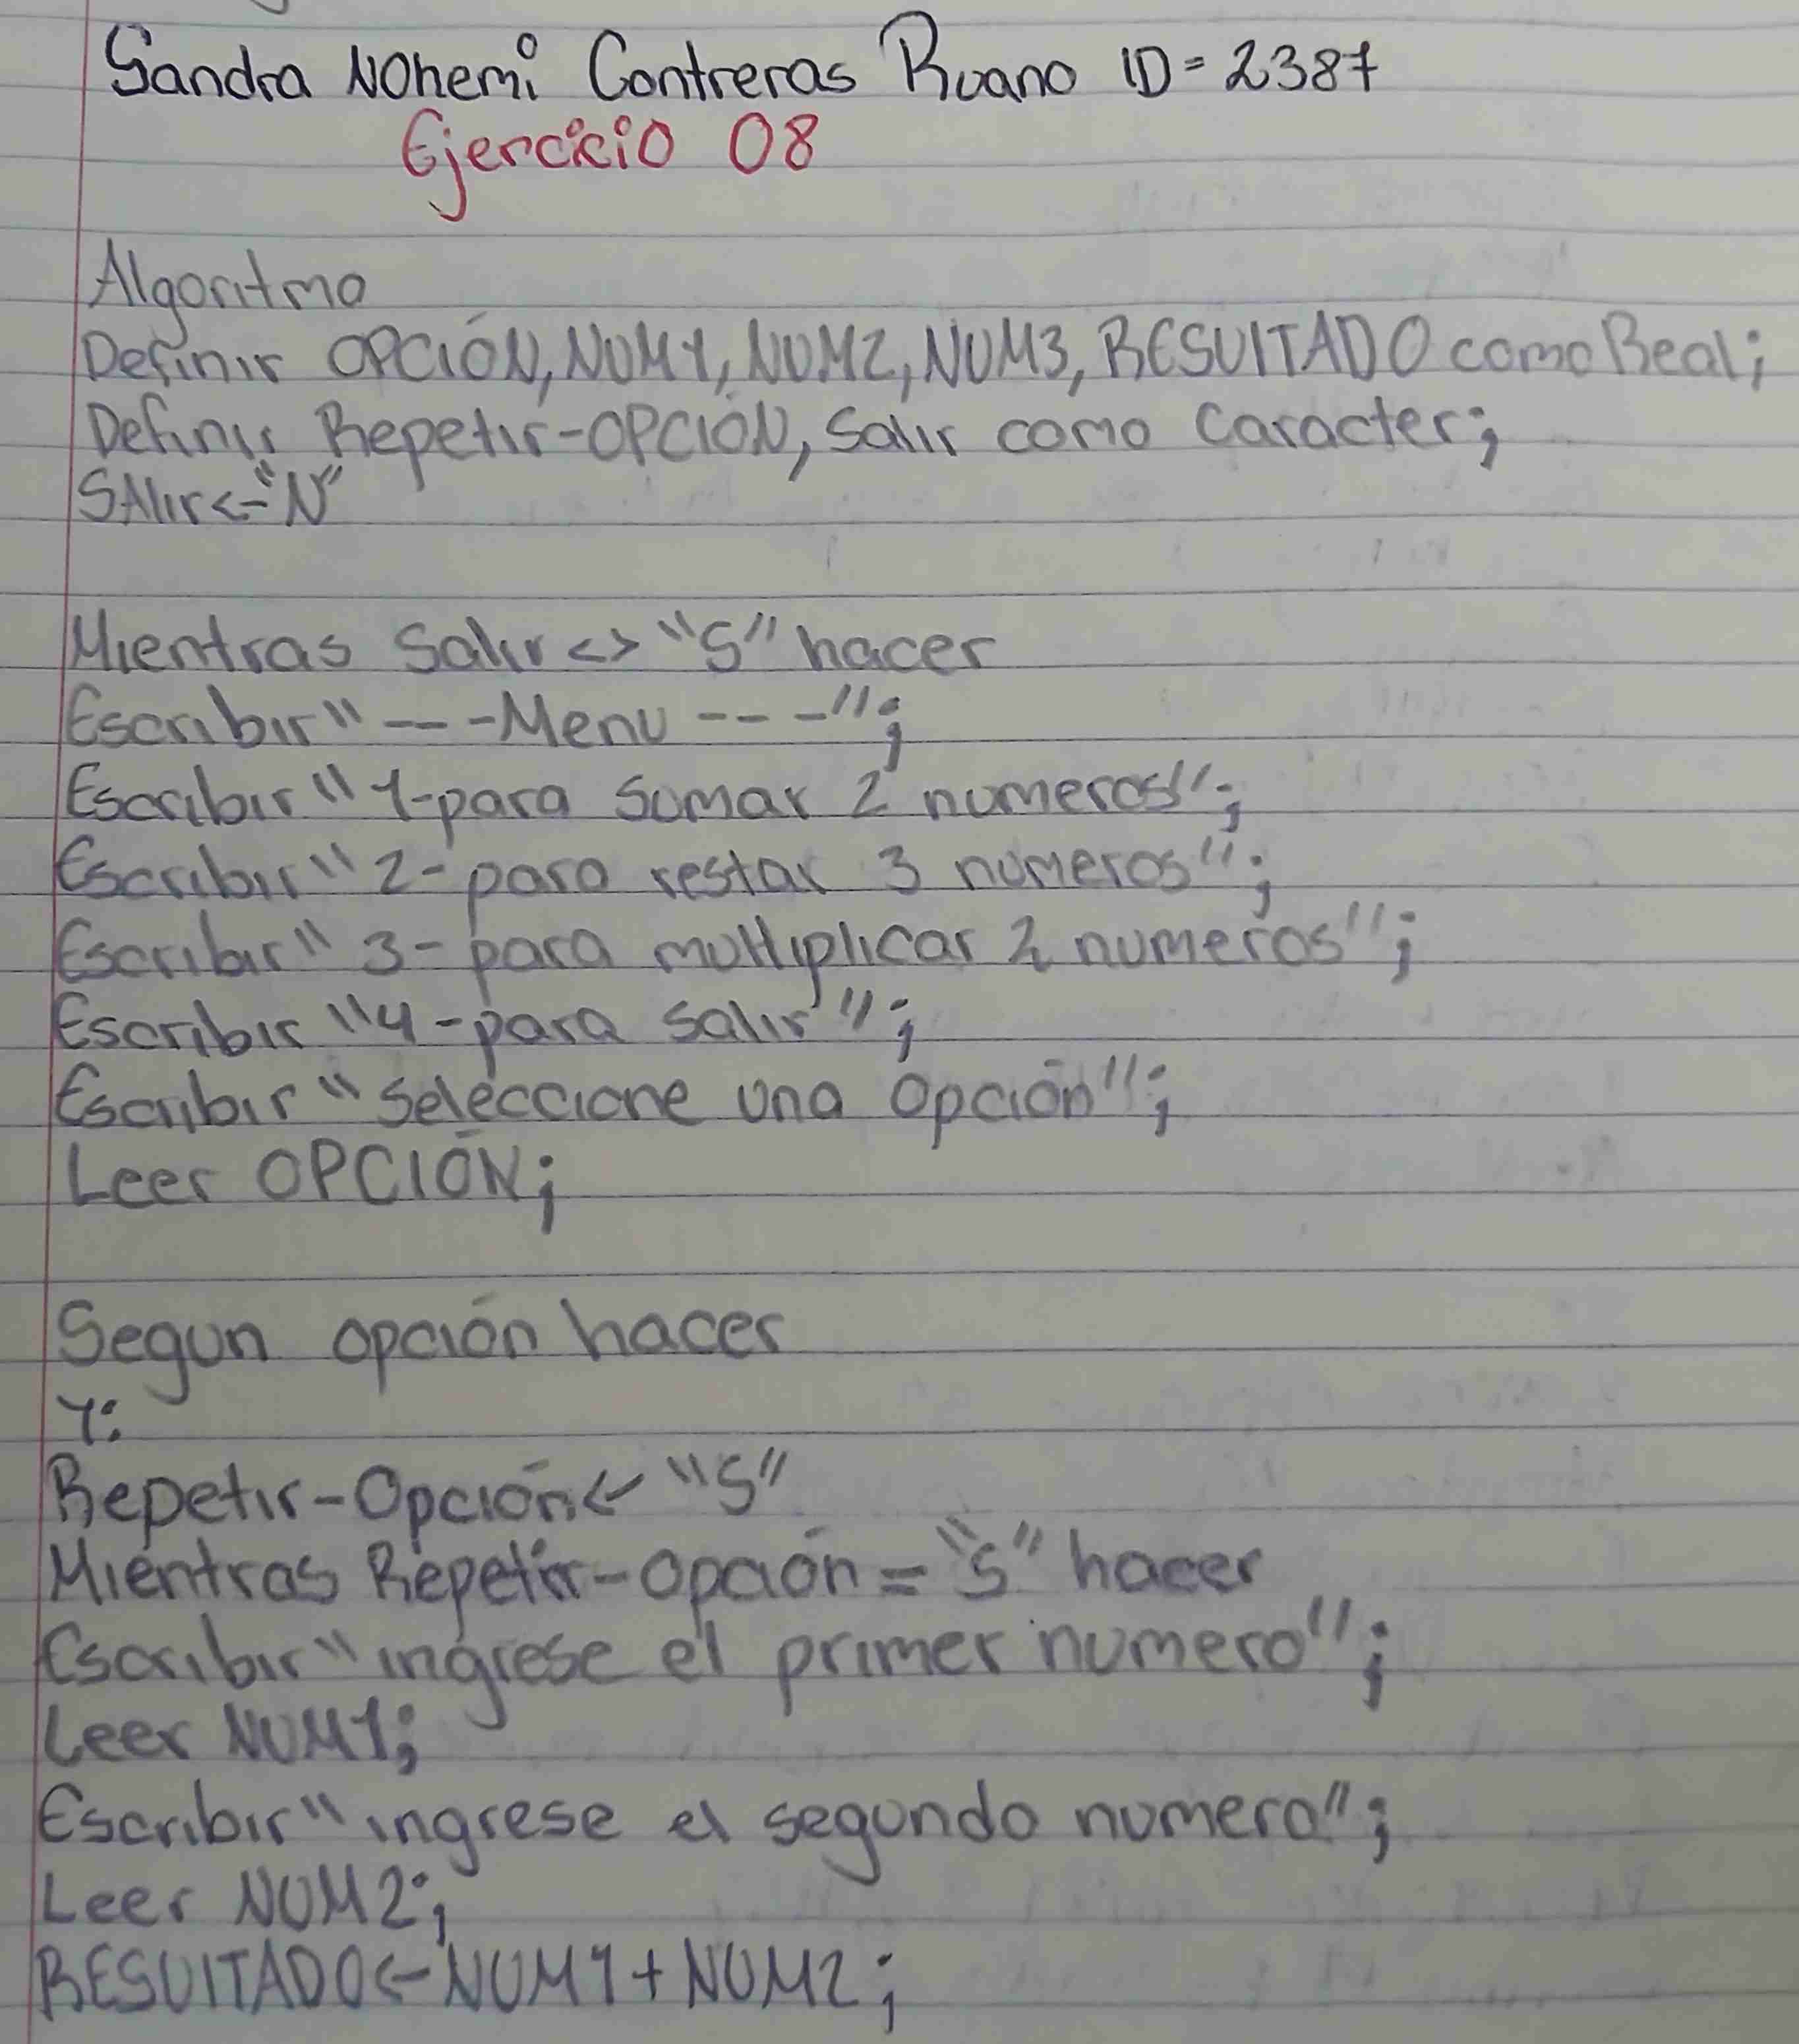 Sandra NOhemi Contreras Ruano ID = 2387
Ejercicio 08
Algoritmo
Definir OPCIÓN, NUM1, NUM2, NUM3, RESUlTADO como Real;
Definir Repetir-OPCIÓN, Salir como Caracter;
SAlir <- "N"
Mientras Salir <> "S" hacer
Escribir "---Menu ---";
Escribir "1-para sumar 2 numeros";
Escribir "2- para restar 3 numeros";
Escribir "3- para multiplicar 2 numeros";
Escribir "4-para salir";
Escribir "seleccione una opción";
Leer OPCIÓN;
Segun opción hacer
1:
Repetir-Opción <- "S"
Mientras Repetir-opción = "S" hacer
Escribir "ingrese el primer numero";
Leer NUM1;
Escribir "ingrese el segundo numero";
Leer NUM2;
RESUlTADO <- NUM1 + NUM2;